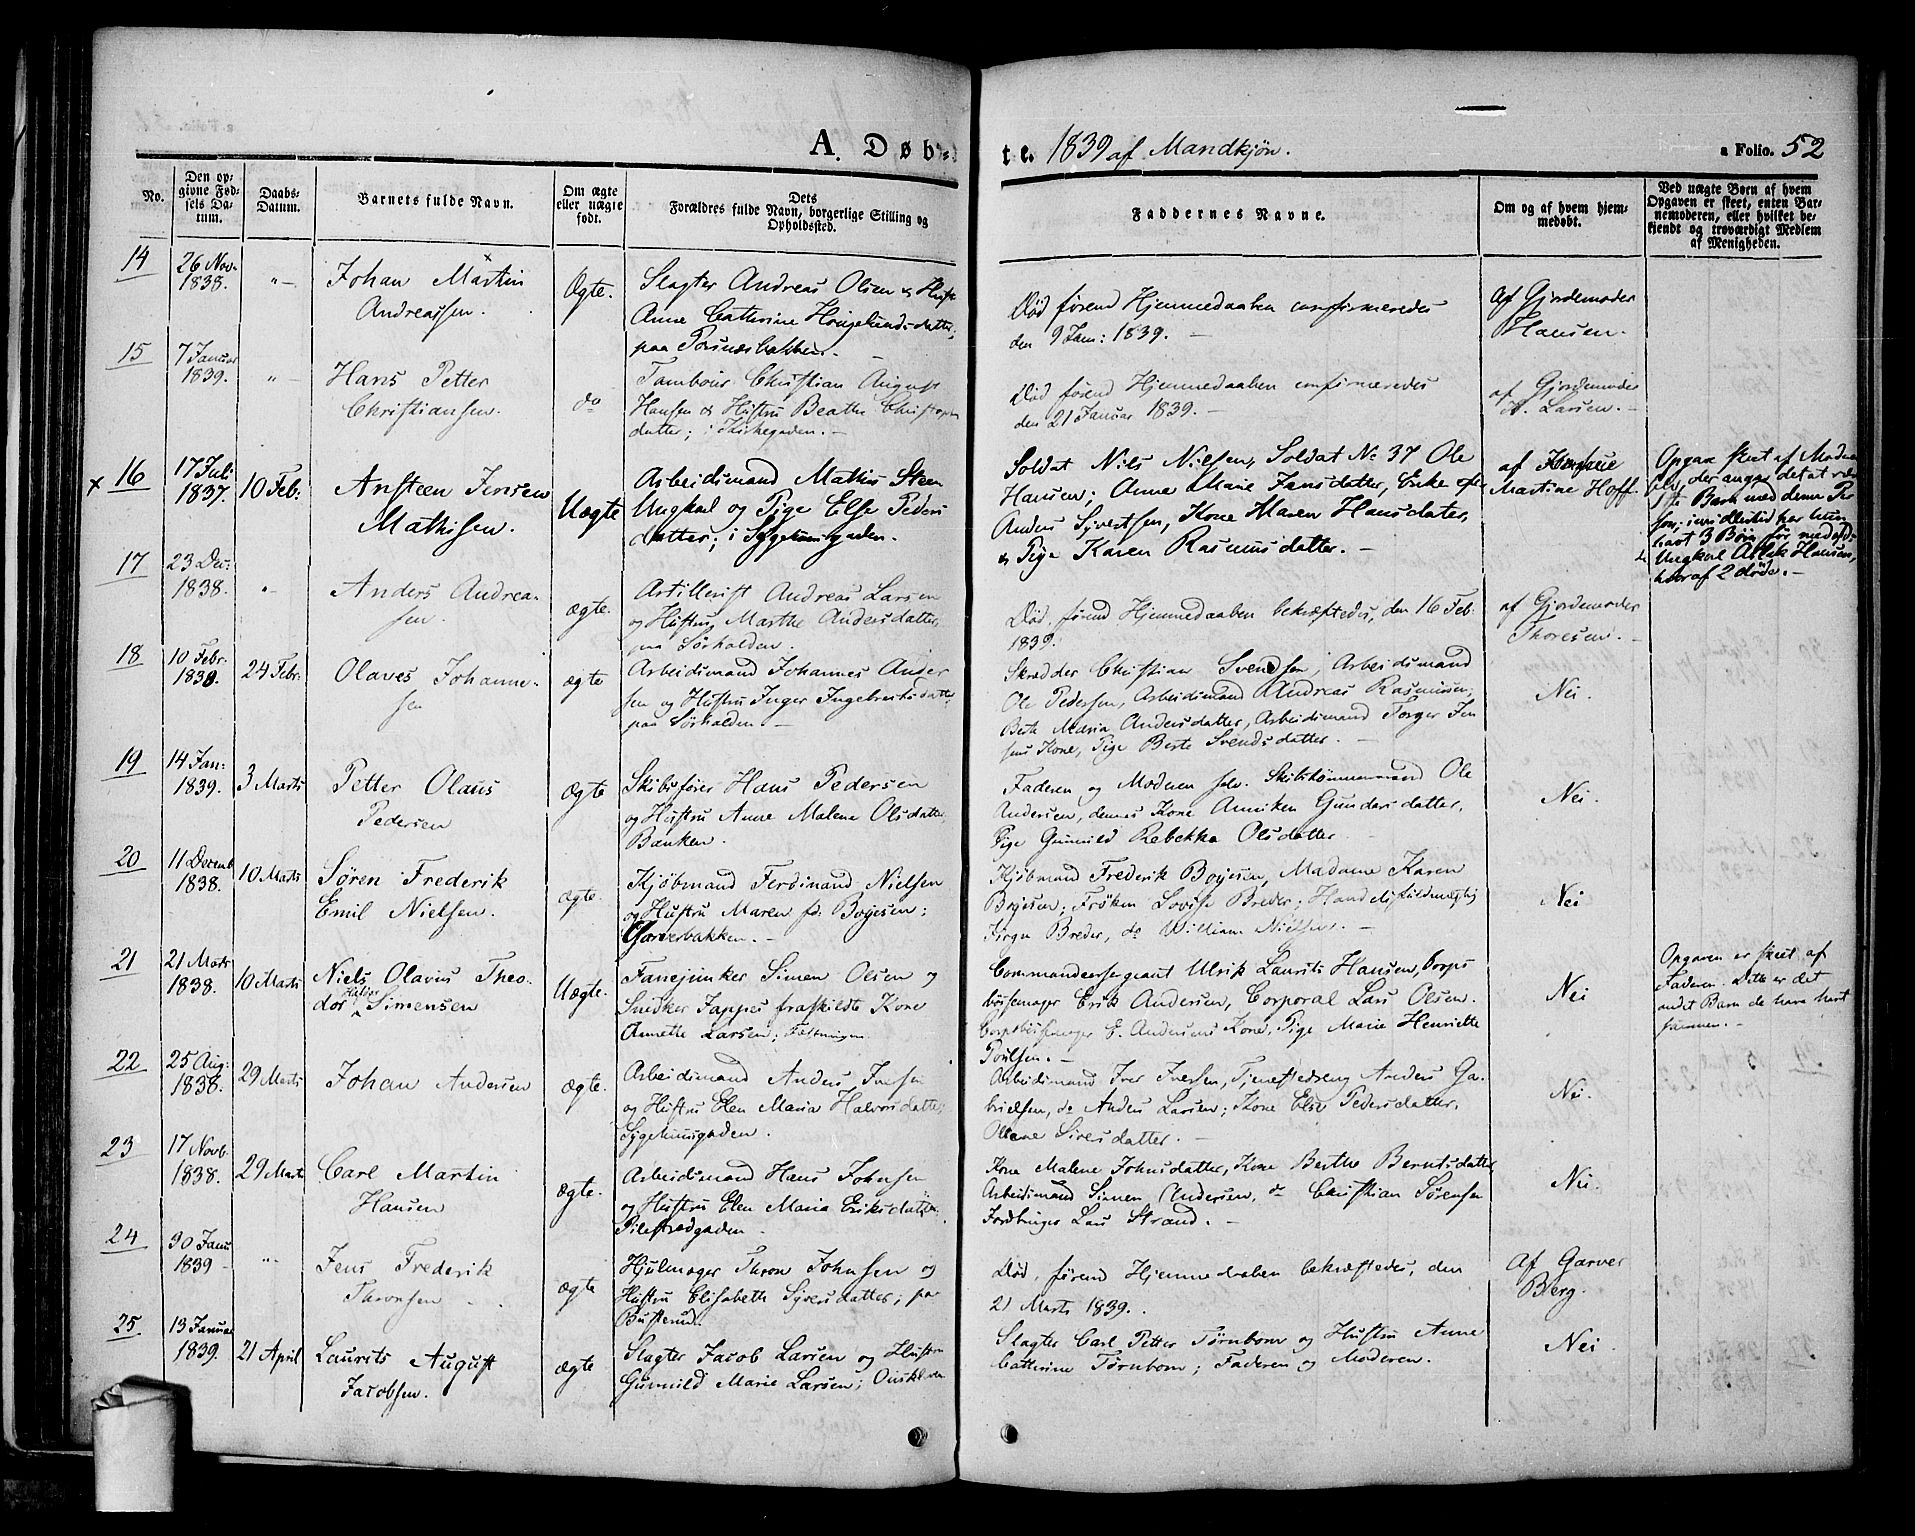 A. Døb=
te. 1839 af Mandkjøn.
a Folio. 52
No.
Den op-
givne Fød-
sels Da-
tum.
Daabs-
Datum.
Barnets fulde Navn.
Om ægte
eller uægte
født.
Dets
Forældres fulde Navn, borgerlige Stilling og
Opholdssted.
Faddernes Navne.
Om og af hvem hjem-
medøbt.
Ved uægte Børn af hvem
Opgaven er skeet, enten Bar-
nemoderen, eller hvilket be-
kjendt og troværdigt Medlem
af Menigheden.
14
26 Nov.
1838.
"-
Johan Martin
Andreassen.
Ægte.
Slagter Andreas Olsen &
Anne Cathrine
paa
Død førend Hjemmedaaben confirmeredes
den 9 Jan: 1839. -
Af Gjordemoder
Hansen.
15
7 Januar
1839.
"-
Hans Petter
Christiansen.
do
Tambour Christian August
Hansen & Hustru Beathe
datter; i Kirkegaden. -
Død førend Hjemmedaaben confirmeredes
den 21 Januar 1839. -
af Gjordemoder
Larsen. -
x 16
17 Juli
1837.
10 Feb:
Ansteen Jensen
Mathisen.
Uægte
Arbeidsmand Mathis Steen
Ungkal og Pige Else Peders
datter; i Sygehuusgaden.
Soldat Niels Nielsen, Soldat No 37 Ole
Hansen; Anne Marie Jansdatter, Enke efter
Anders Syvertsen, Kone Maren Hansdatter,
& Pige Karen Rasmusdatter. -
af
Martine Hoff.
Opgav skeet af Moderen
der angav det at være
1ste Barn med denne Per
son; imidlertid har hun
havt 3 Børn før med
Ungkal Hansen,
hvoraf 2 døde. -
17
23 Dec:
1838.
"-
Anders Andrea-
sen.
ægte.
Artillerist Andreas Larsen
og Hustru Marthe Andersdatter,
paa Sørhalden.
Død, førend Hjemmedaaben bekræftedes, den 16 Feb:
1839.
af Gjordemoder
Thoresen. -
18
10 Febr.
1839.
24 Febr.
Olaves Johanne-
sen
ægte
Arbeidsmand Johannes Ander
sen og Hustru Inger Ingebretsdatter
paa Sørhalden -
Skredder Christian Svendsen, Arbeidsmand
Ole Pedersen, Arbeidsmand Andreas Rasmussen,
Berte Maria Andersdatter, Arbeidsmand Torger Jen
sens Kone, Pige Berte Svendsdatter. -
Nei.
19
14 Jan:
1839.
3 Marts
Petter Olaus
Pedersen
ægte
Skibsfører Hans Pedersen
og Hustru Anne Malene Olsdatter,
Banken.
Faderen og Moderen selv. Skibstømmermand Ole
Andersen, dennes Kone Anniken Gundersdatter,
Pige Gunnild Rebekka Olsdatter.
Nei.
20
11 Decemb
1838.
10 Marts
Søren Frederik
Emil Nielsen.
ægte.
Kjøbmand Ferdinand Nielsen
og Hustru Maren fd. Boyesen;
Garverbakken. -
Kjøbmand Frederik Boyesen, Madame Karen
Boyesen; Frøken Lovise Breder; Handelsfuldmægtig
Jørgn Breder, do William Nielsen. -
Nei
21
21 Marts
1838.
10 Marts
Niels Olavius Theo-
dor Simensen
Uægte.
Fanejunker Simen Olsen og
Snedker Jappes fraskildte Kone
Annette Larsen; Fæstningen
Commandeersergeant Ulrik Laurits Hansen, Corps
bøssemager Erik Andersen, Corporal Lars Olsen.
Corpsbøssemager E. Andersens Kone, Pige Marie Henriette
Poulsen. -
Nei
Opgaven er skeet af
Faderen. Dette er det
andet Barn de have havt
sammen. -
22
25 Aug:
1838.
29 Marts
Johan Andersen
ægte.
Arbeidsmand Anders Iversen
og Hustru Elen Maria Halvorsdatter,
Sygehuusgaden.
Arbeidsmand Iver Iversen, Tjenestedreng Anders Ga-
brielsen, do Anders Larsen; Kone Else Pedersdatter,
Oliane Siversdatter. -
Nei.
23
17 Novb.
1838.
29 Marts
Carl Martin
Hansen
ægte.
Arbeidsmand Hans Johnsen
og Hustru Elen Maria Eriksdatter
Pilestrædgaden.
Kone Malene Johnsdatter, Kone Berthe Berntsdatter
Arbeidsmand Simen Andersen, do Christian Sørensen
Lars Strand. -
Nei.
24
30 Janu
1839 -
"-
Jens Frederik
Thronsen
ægte
Hjulmager Thron Johnsen og
Hustru Elisabeth Syversdatter; paa
Død, førend Hjemmedaaben bekræftedes, den
21 Marts 1839.
Af Garver
Berg.
25
13 Januar
1839.
21 April
Laurits August
Jacobsen.
ægte
Slagter Jacob Larsen og Hustru
Gunnild Marie Larsen;
Slagter Carl Petter Tørnbom og Hustru Anne
Cathrine Tørnbom; Faderen og Moderen.
Nei.